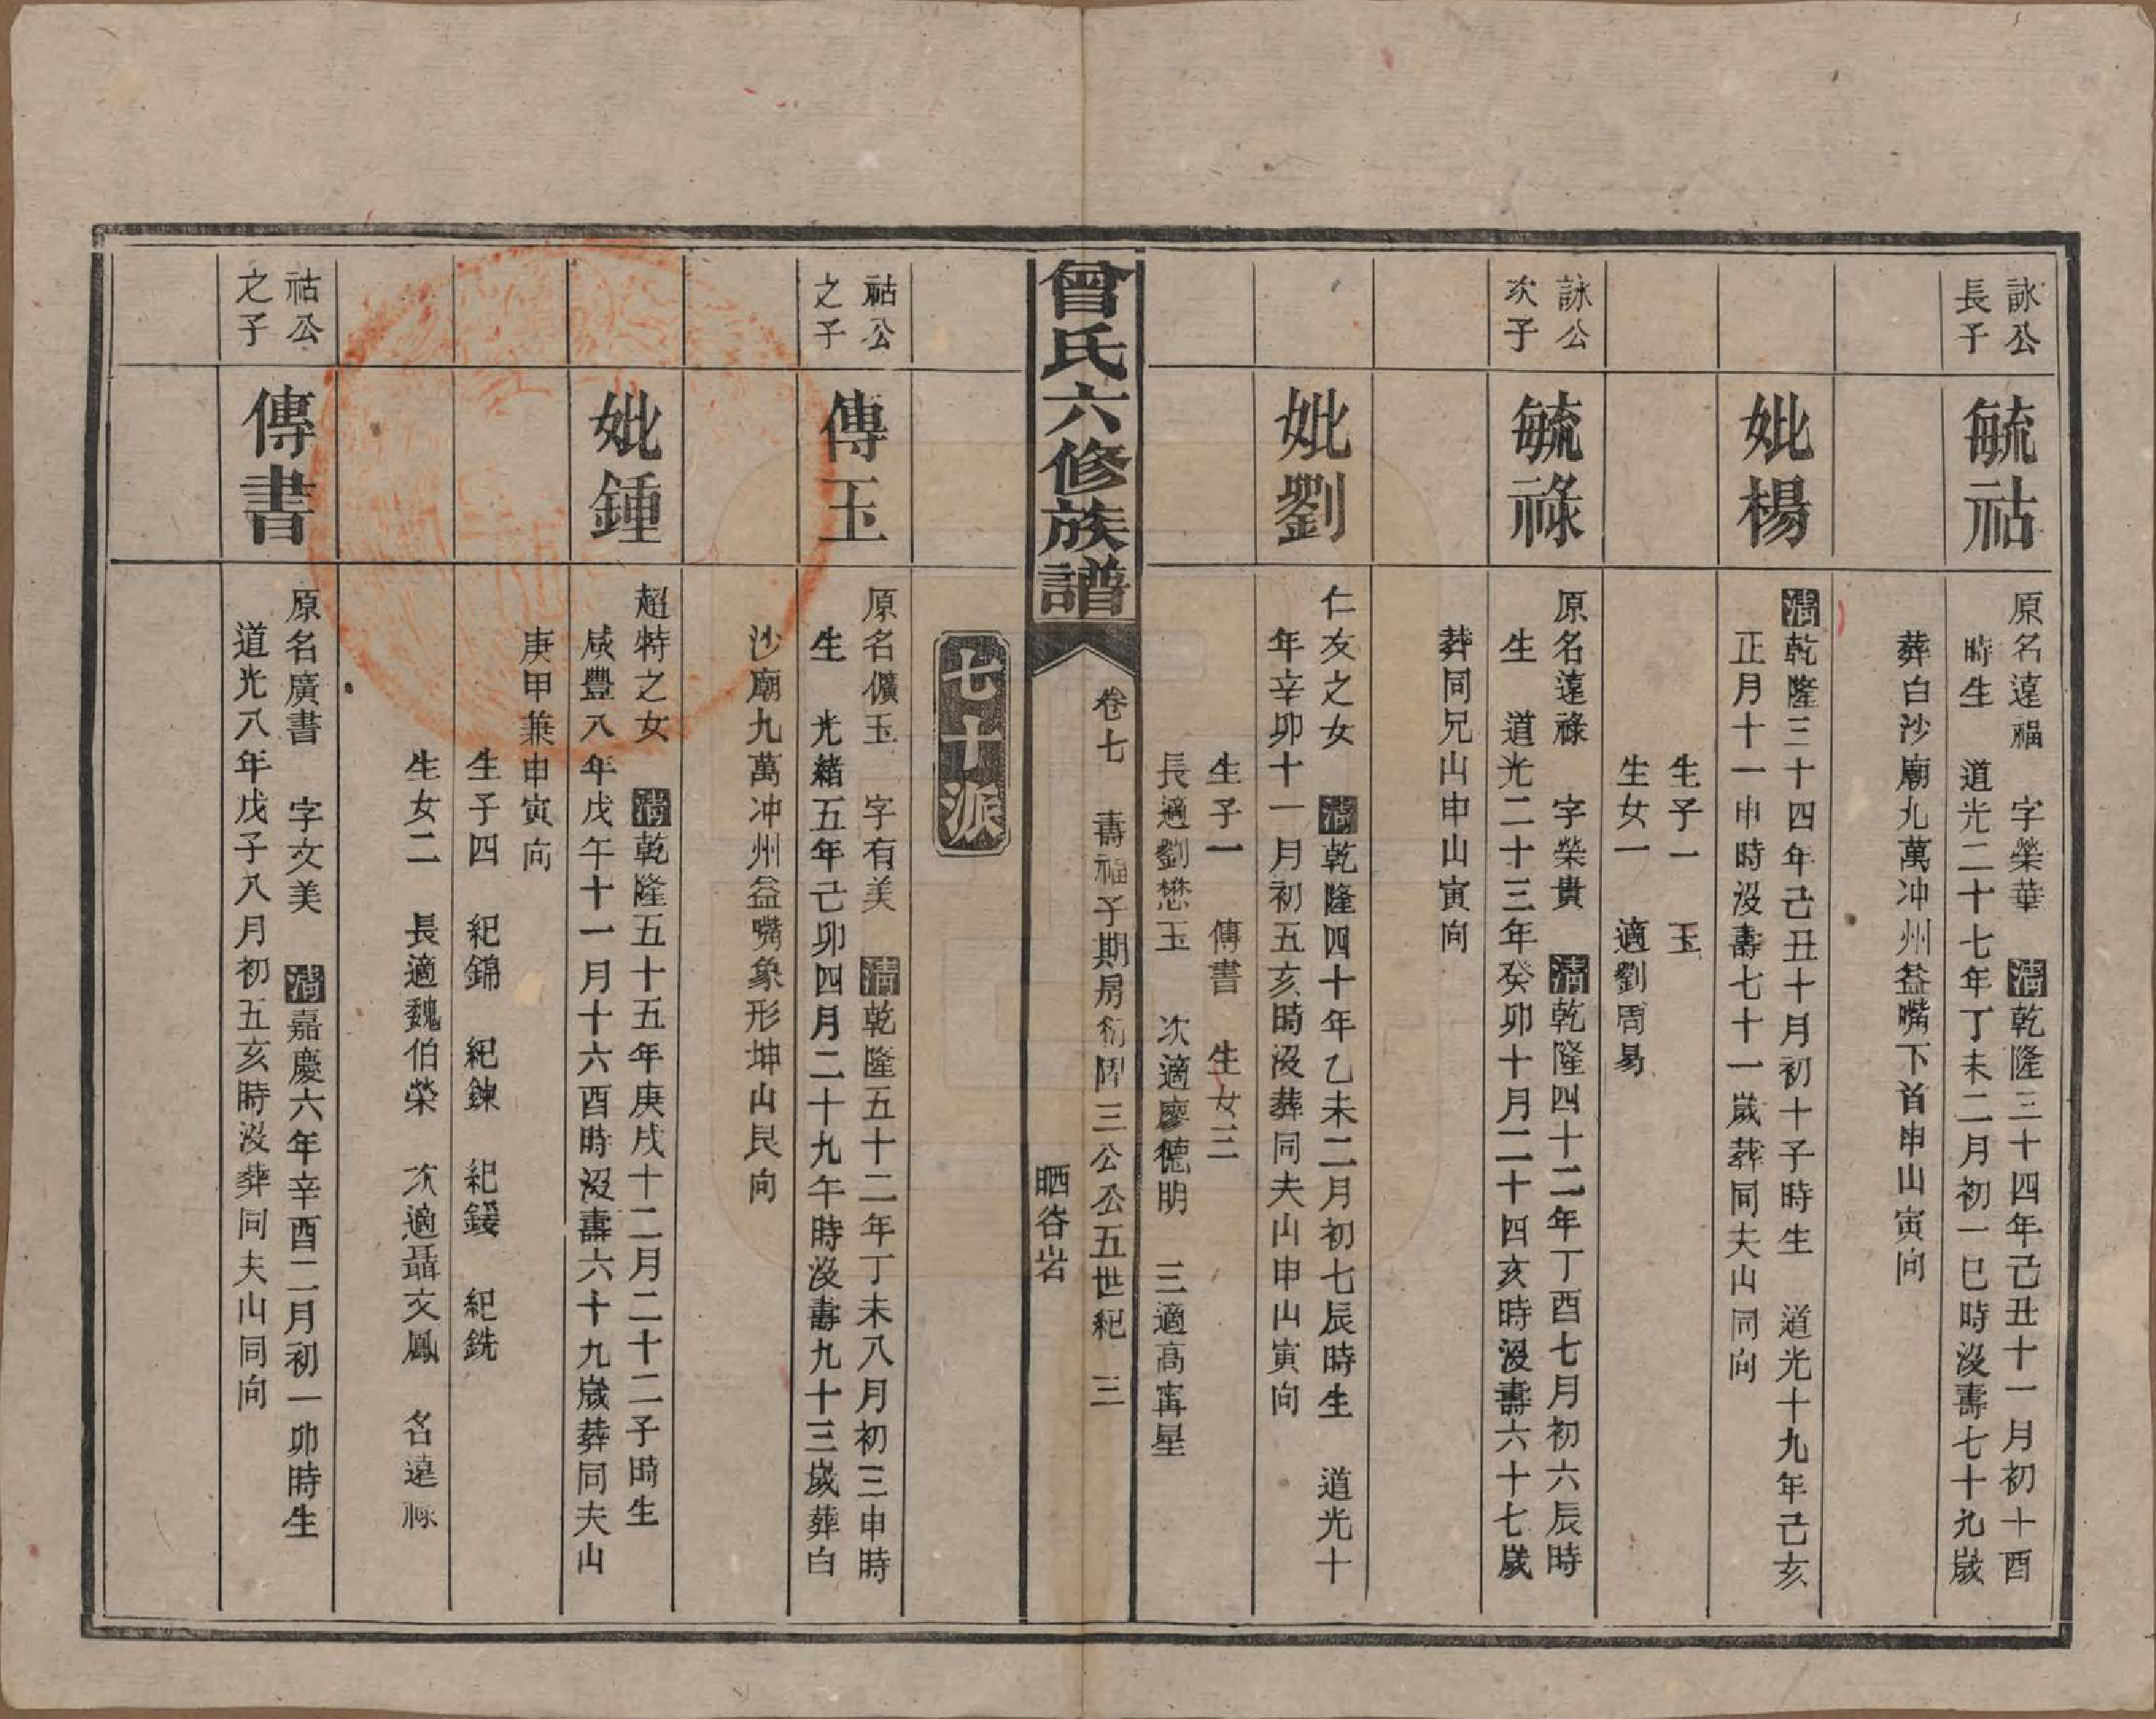 詠公
長子
毓祜
原名遠福 字榮華 清乾隆三十四年己丑十一月初十酉
時生 道光二十七年丁未二月初一巳時沒壽七十九歲
葬白沙廟九萬冲州益嘴下首申山寅向
妣楊
清乾隆三十四年己丑十月初十子時生 道光十九年己亥
正月十一申時沒壽七十一歲葬同夫山同向
生子一 玉
生女一 適劉周易
詠公
次子
毓祿
原名遠祿 字榮貴 清乾隆四十二年丁酉七月初六辰時
生 道光二十三年癸卯十月二十四亥時沒壽六十七歲
葬同兄山申山寅向
妣劉
仁友之女 清乾隆四十年乙未二月初七辰時生 道光十
年辛卯十一月初五亥時沒葬同夫山申山寅向
生子一 傳書 生女三
長適劉懋玉 次適廖德明 三適高甯星
曾氏六修族譜
卷七 壽福子期房衍陞三公公五世紀 三
晒谷岩
七十派
祜公
之子
傳玉
原名儣玉 字有美 清乾隆五十二年丁未八月初三申時
生 光緒五年己卯四月二十九午時沒壽九十三歲葬白
沙廟九萬冲州益嘴象形坤山艮向
妣鍾
超特之女 清乾隆五十五年庚戌十二月二十二子時生
咸豐八年戊午十一月十六酉時沒壽六十九歲葬同夫山
庚甲兼申寅向
生子四 紀錦 紀鍊 紀鍰 紀銑
生女二 長適魏伯榮 次適聶文鳳 名遠祿
祜公
之子
傳書
原名廣書 字文美 清嘉慶六年辛酉二月初一卯時生
道光八年戊子八月初五亥時沒葬同夫山同向